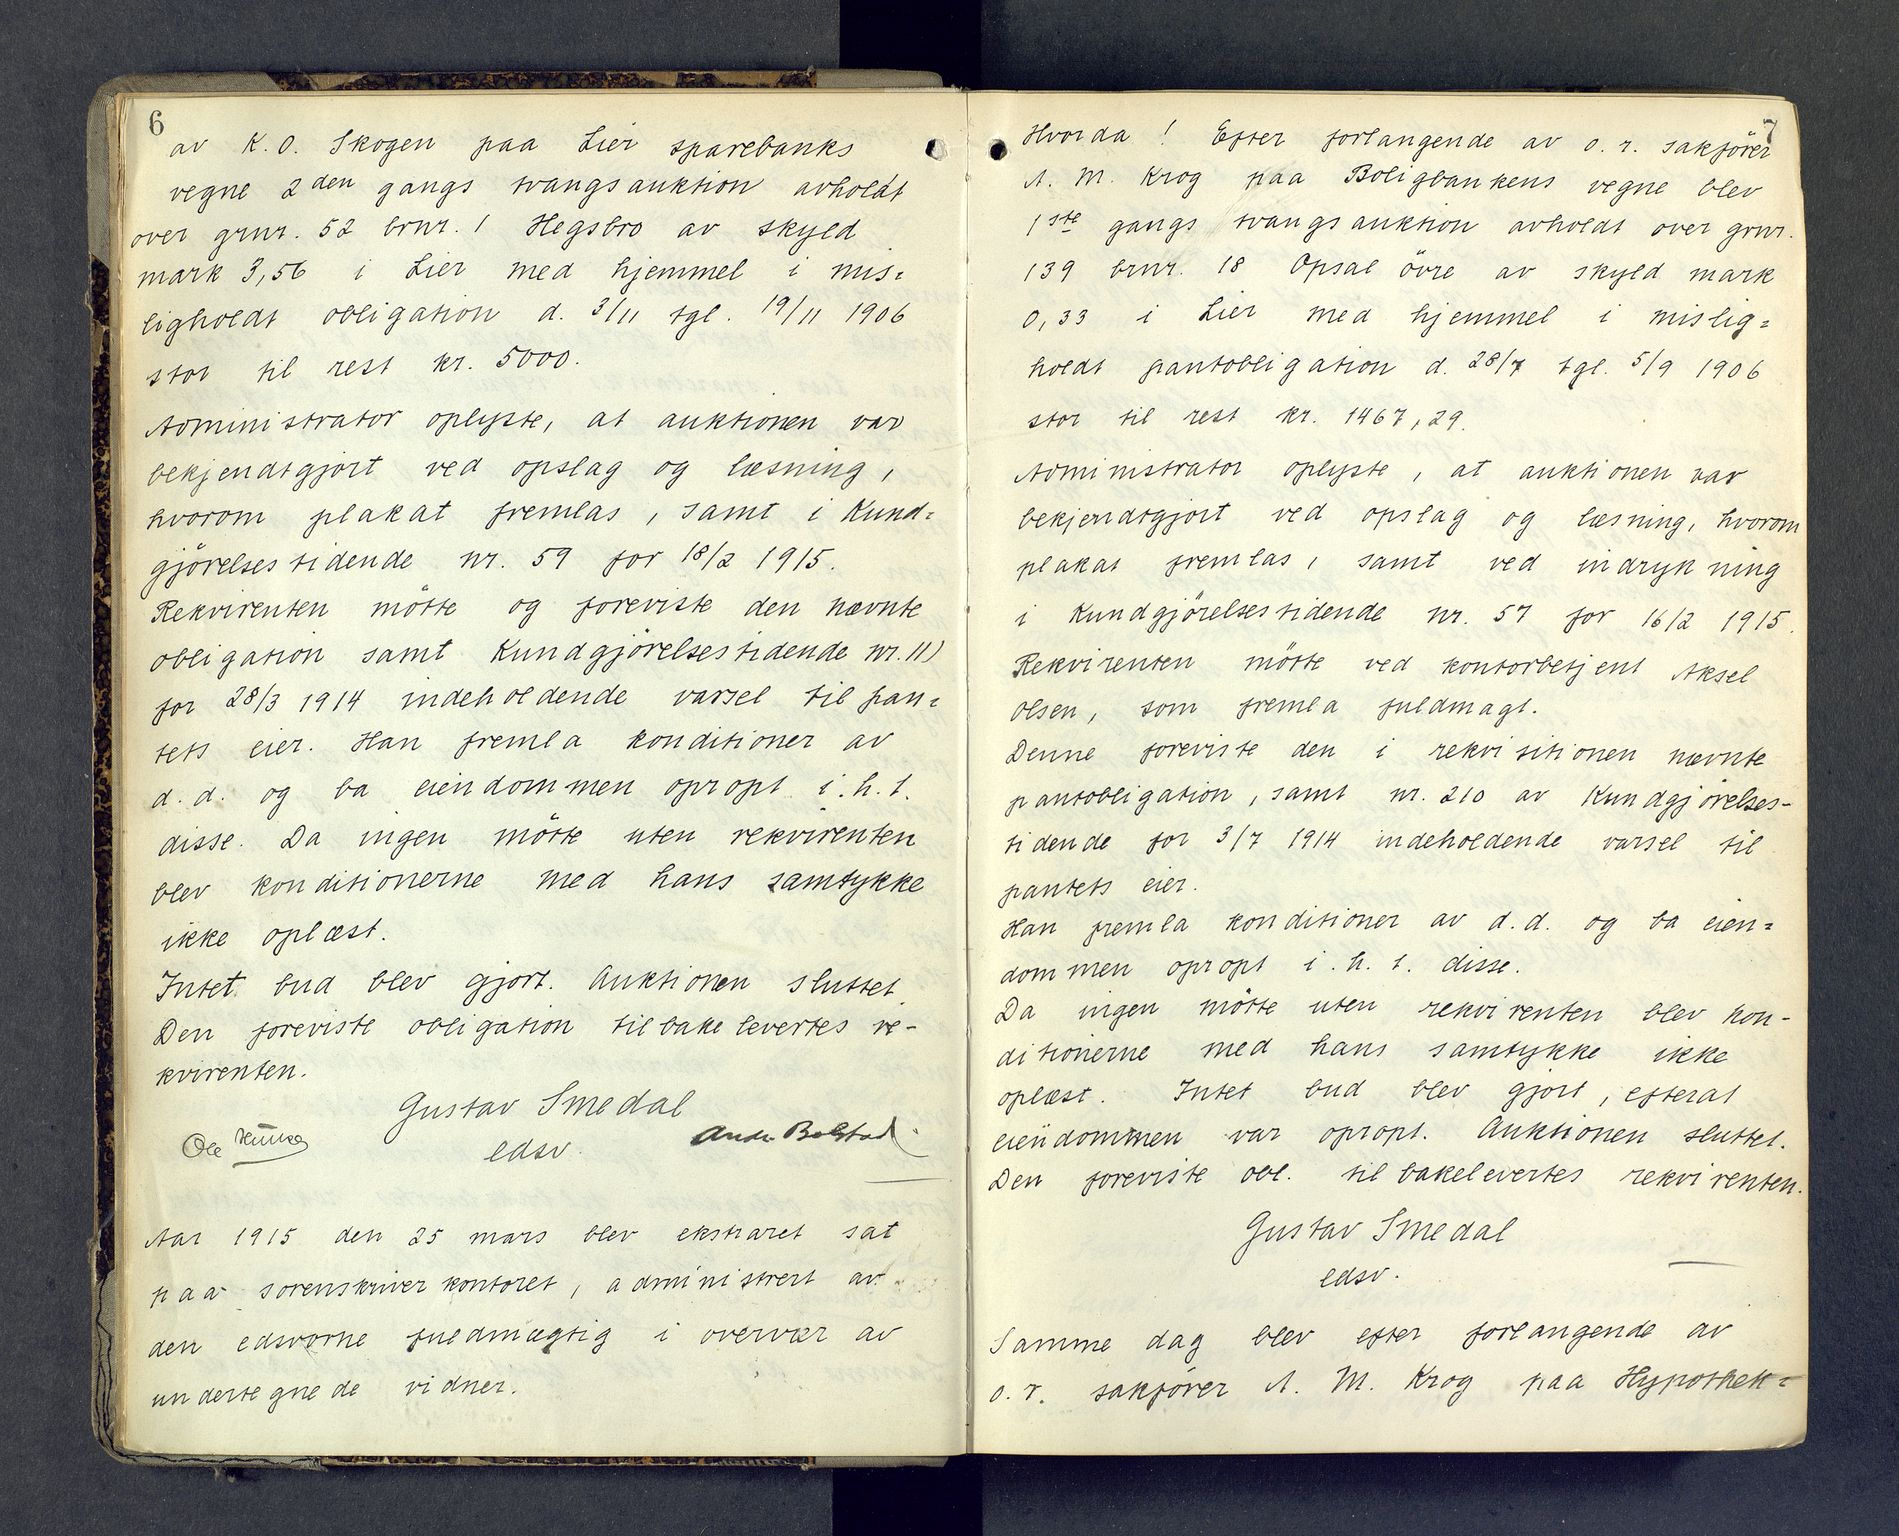 6
av K. O. Skogen paa Lier sparebanks
vegne 2den gangs tvangsauktion avholdt
over grnr. 52 brnr. 1 Hegsbro av skyld
mark 3,56 i Lier med hjemmel i mis=
ligholdt obligation d. 3/11 tgl. 19/11 1906
stor til rest kr. 5000.
Administrator oplyste, at auktionen var
bekjendtgjort ved opslag og læsning,
hvorom plakat fremlas, samt i Kund=
gjörelsestidende nr. 59 for 18/2 1915.
Rekvirenten mötte og foreviste den nævnte
obligation samt Kundgjörelsestidende nr. 11)
for 28/3 1914 indeholdende varsel til pan=
tets eier. Han fremla konditioner av
d. d. og ba eiendommen opropt i. h. t.
disse. Da ingen mötte uten rekvirenten
blev konditionerne med hans samtykke
ikke oplæst.
Intet bud blev gjort. Auktionen sluttet.
Den foreviste obligation tilbakelevertes re-
kvirenten.
Gustav Smedal
edsv.
Ole
Bolstad
Aar 1915 den 25 mars blev ekstraret sat
paa sorenskriverkontoret, administrert av
den edsvorne fuldmægtig i overvær av
undertegnede vidner.
7
Hvorda! Efter forlangende av o. r. sakförer
A. M. Krog paa Boligbankens vegne blev
1ste gangs tvangsauktion avholdt over grnr.
139 brnr. 18 Opsal övre av skyld mark
0,33 i Lier med hjemmel i mislig=
holdt pantobligation d. 28/7 tgl. 5/9 1906
stor til rest kr. 1467,29.
Administrator oplyste, at auktionen var
bekjendtgjort ved opslag og læsning, hvorom
plakat fremlas, samt ved indrykning
i Kundgjörelsestidende nr. 57 for 16/2 1915.
Rekvirenten mötte ved kontorbetjent Aksel
Olsen, som fremla fuldmagt.
Denne foreviste den i rekvisitionen nævnte
pantobligation, samt nr. 210 av Kundgjörelses-
tidende for 3/7 1914 indeholdende varsel til
pantets eier.
Han fremla konditioner av d. d. og ba eien=
dommen opropt i. h. t. disse.
Da ingen mötte uten rekvirenten blev kon-
ditionerne med hans samtykke ikke
oplæst. Intet bud blev gjort, efterat
eiendommen var opropt. Auktionen sluttet.
Den foreviste obl. tilbakelevertes rekvirenten.
Gustav Smedal
edsv.
Samme dag blev efter forlangende av
o. r. sakförer A. M. Krog paa Hypothek=